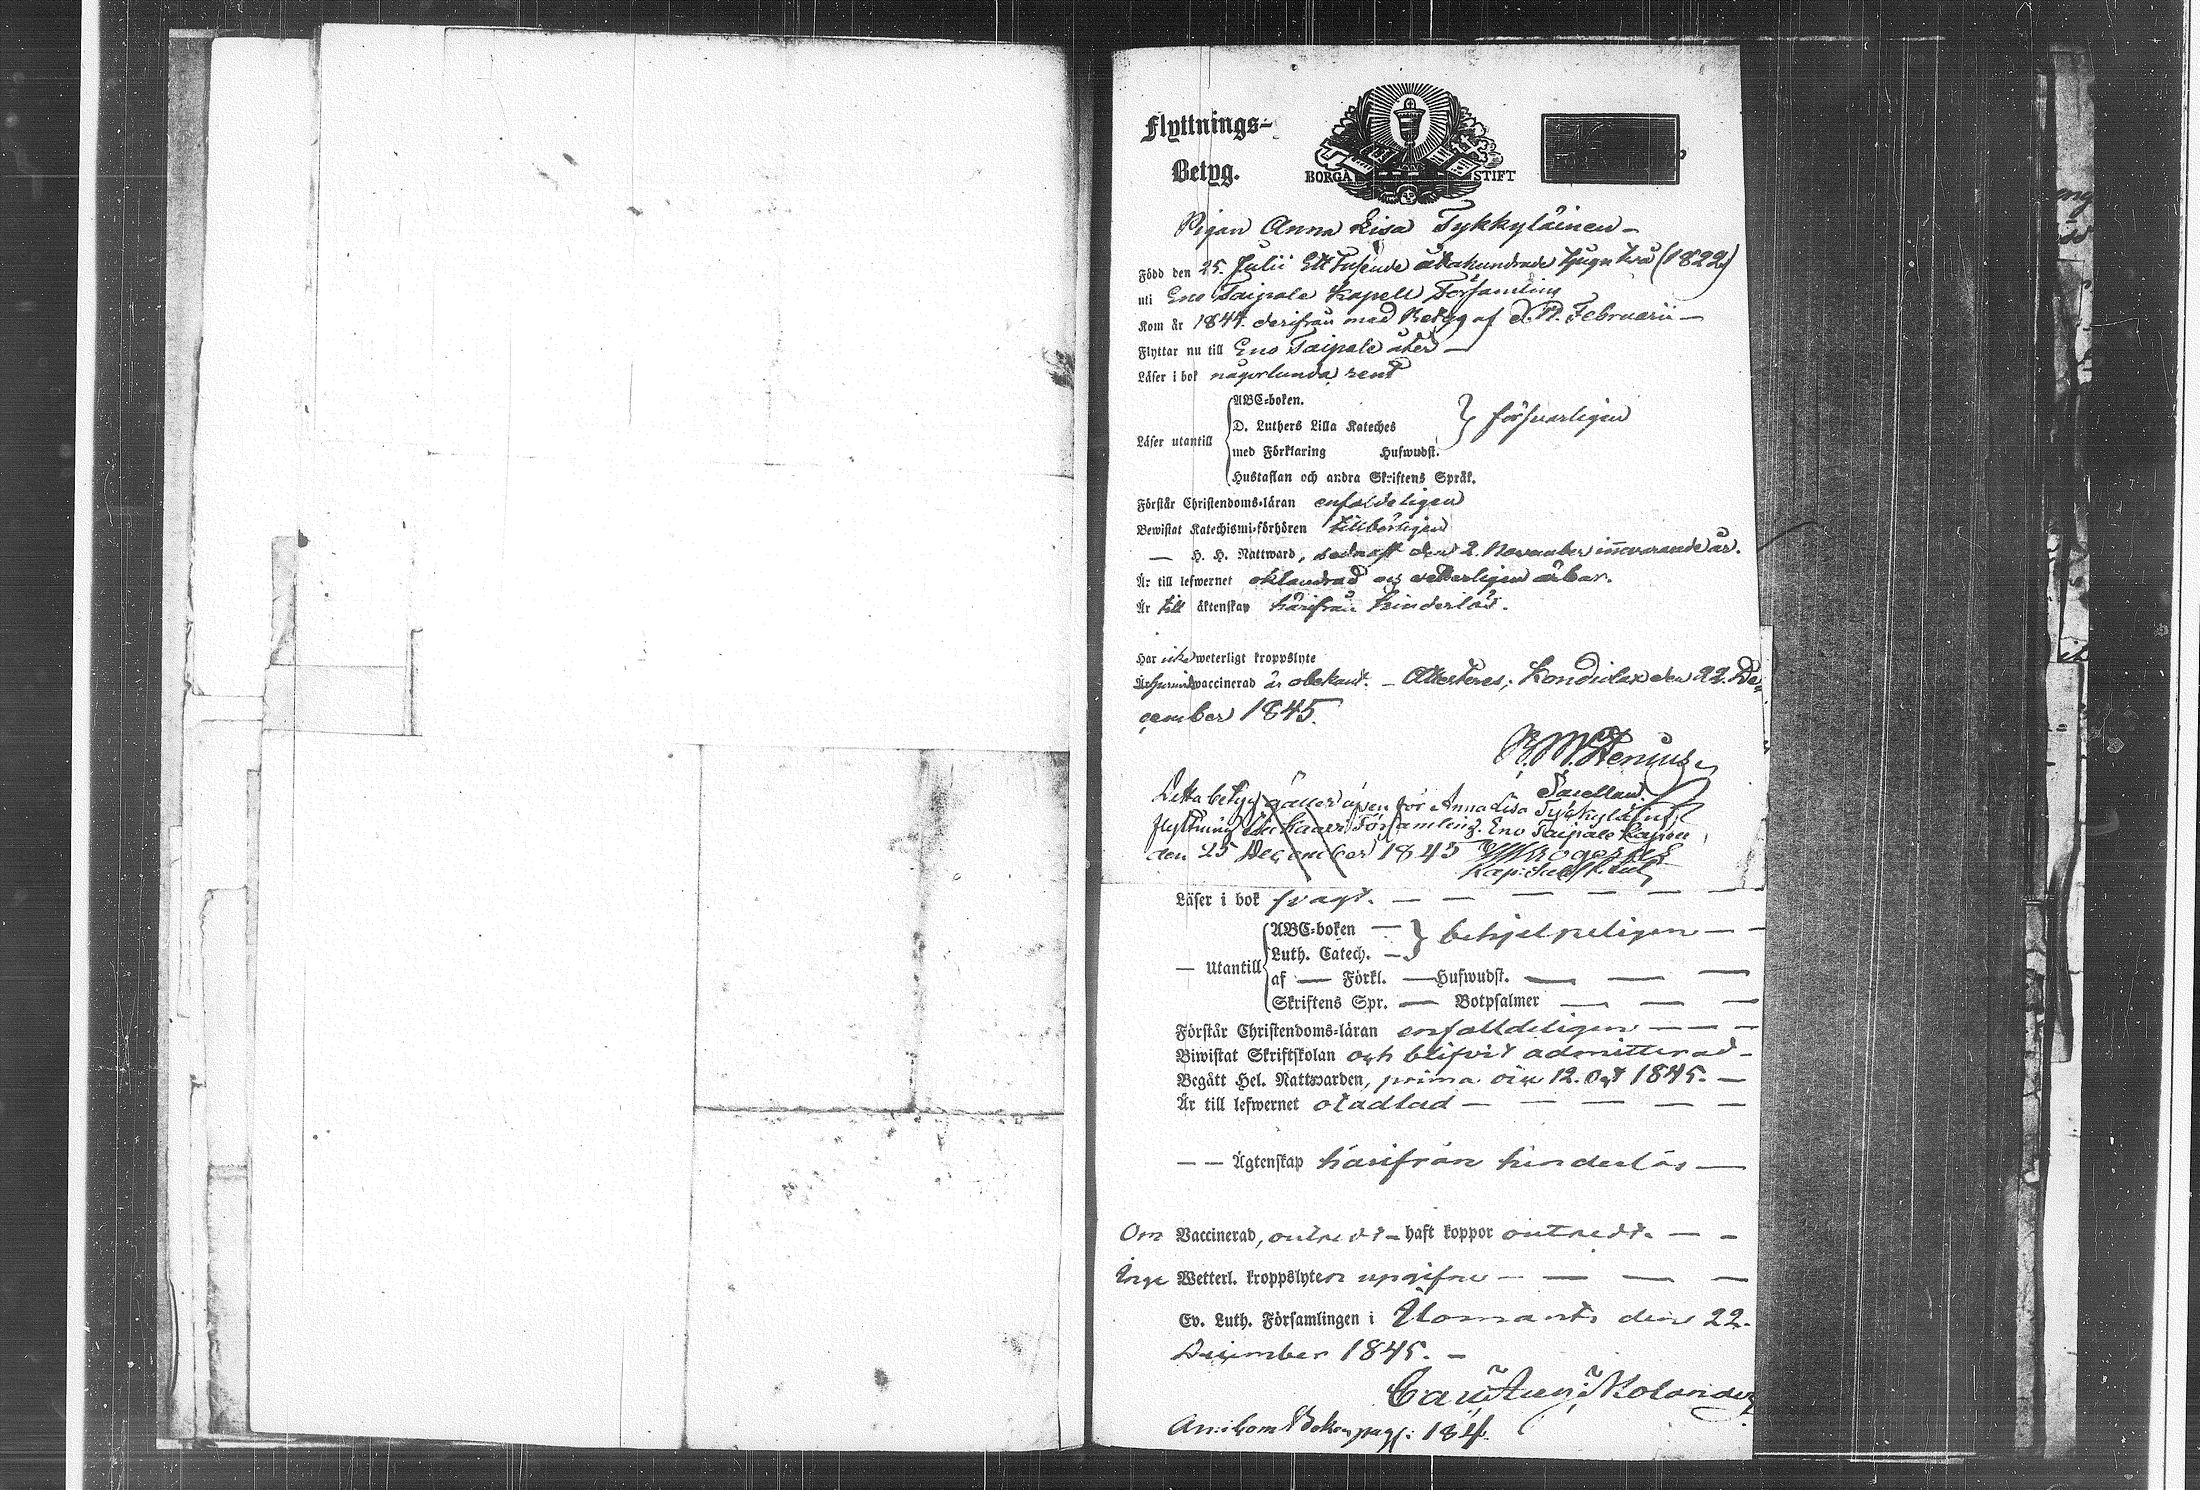 Flyttnings-
Betyg.
BORGÅ STIFT
Pigan Anna Lisa Tykkyläinen
Född den 25. Julii Ett Tusende åttahundrade tjugu två (1822)
uti Eno Taipale Kapell Församling
Kom år 1844. derifrån med Betyg af d. Februarii
Flyttar nu till Eno Taipale åter
Läser i bok någorlunda rent
ABC-boken.
D. Luthers Lilla Kateches } försvarligen
Läser utantill
med Förklaring Hufwudst.
Hustaflan och andra Skriftens Språk.
Förstår Christendoms-läran enfaldeligen
Bewistat Katechismi-förhören tillbörligen
— H. H. Nattward, sednast den 2. November innevarande år.
Är till lefwernet oklandrad och vetterligen ärbar.
Är till äktenskap härifrån hinderlös.
Har icke weterligt kroppslyte
vaccinerad är obekant. – Attesteras, Kondiolax den 22. De-
cember 1845.
Detta betyg gäller äfven för Anna Lisa Tykkyläinens
flyttning till Kaavi Församling. Eno Taipale Kapell
den 25 December 1845
Läser i bok svagt.
ABC-boken — } behjelpeligen
Luth. Catech. —
— Utantill
af — Förkl. — Hufwudst.
Skriftens Spr. — Botpsalmer
Förstår Christendoms-läran enfalldeligen
Biwistat Skriftskolan och blifvit admitterad
Begått Hel. Nattwarden, prima vice 12. Oct 1845.
Är till lefwernet otadlad
— — Ägtenskap härifrån hinderlös
Om Vaccinerad, outredt – haft koppor outredt.
Inga Wetterl. kroppslyten uppgifne
Ev. Luth. Församlingen i Ilomants den 22.
December 1845.
Molander
Boken pag: 184.